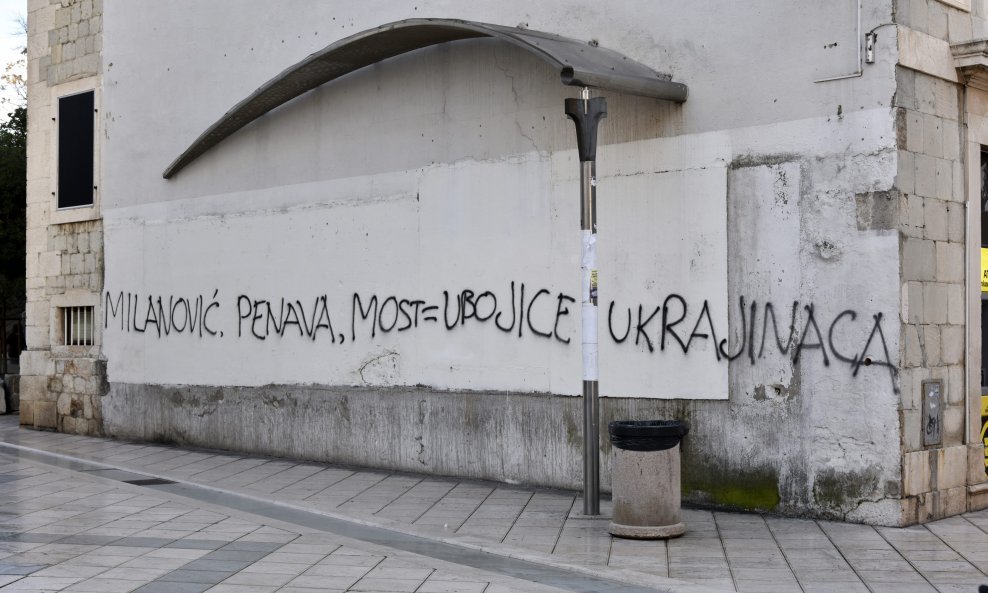 MILANOVIĆ, PENAVA, MOST=UBOJICE UKRAJINACA